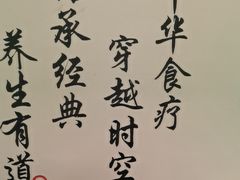 华食疗
穿越时空
承经典
养生有道